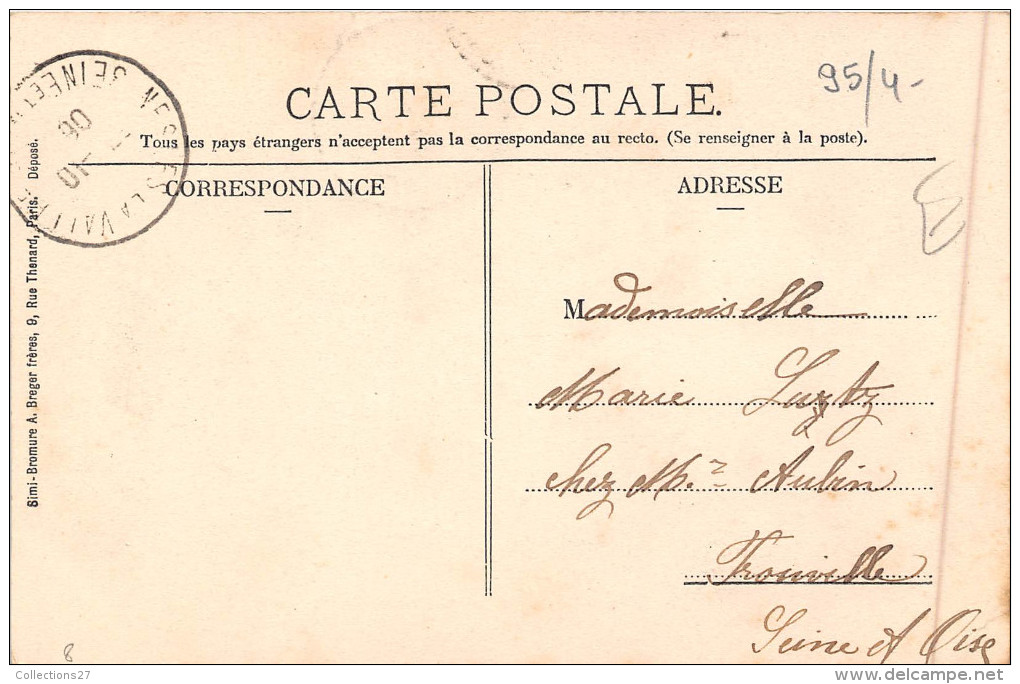 95/4-
CARTE POSTALE.
Tous les pays étrangers n'acceptent pas la correspondance au recto. (Se renseigner à la poste).
CORRESPONDANCE
ADRESSE
NESLES LA VALLÉE
SEINE ET
10
06
Simi-Bromure A. Breger frères, 9, Rue Thenard, Paris. Déposé.
Mademoiselle
Marie
chez Mr Aubin
Frouville
Seine et Oise
8
Collections27
delcampe.net